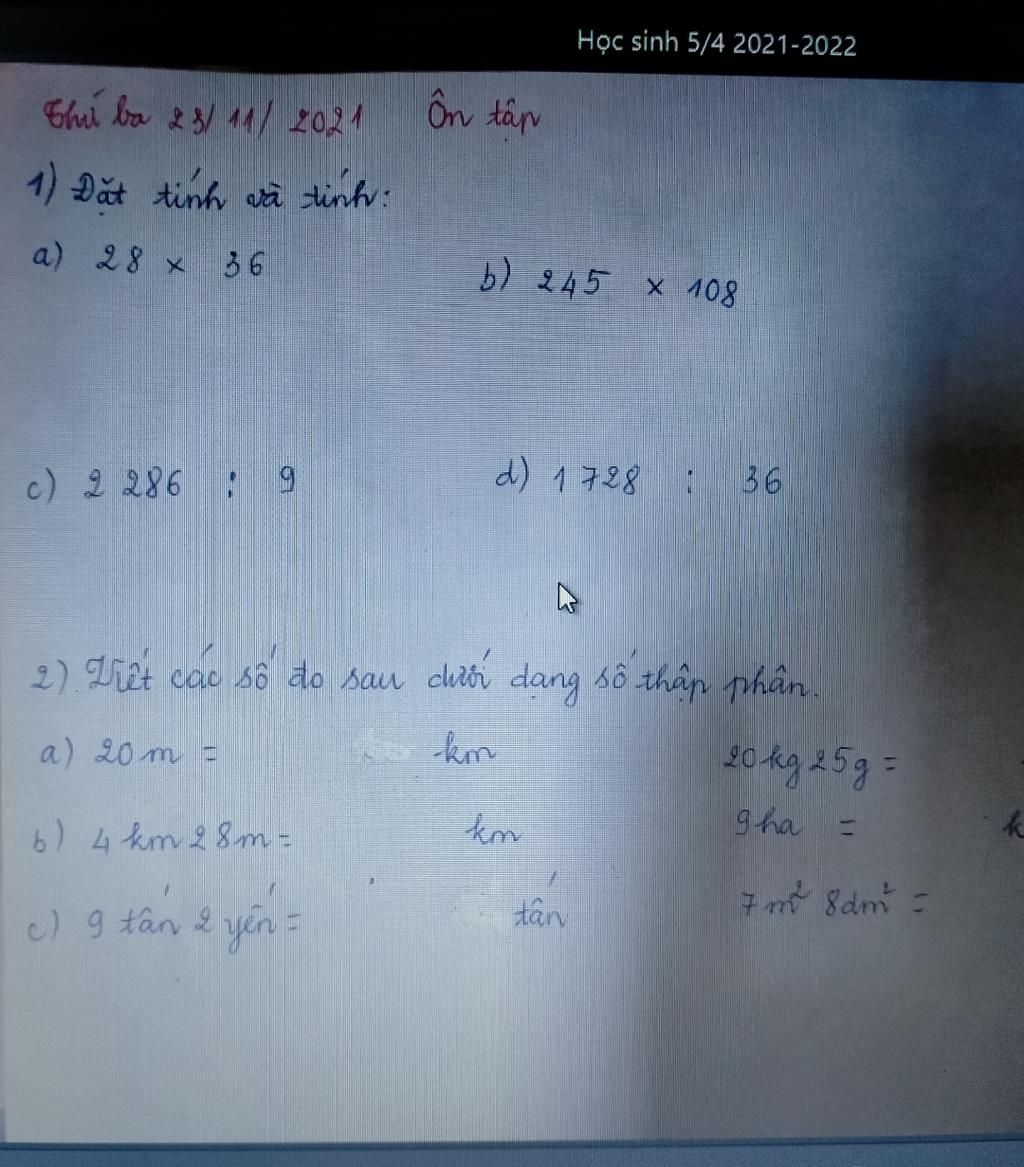 Học sinh 5/4 2021-2022
Thứ ba 23/11/2021 Ôn tập
1) Đặt tính và tính:
a) 28 x 36 b) 245 x 108
c) 2 286 : 9 d) 1 728 : 36
2) Viết các số đo sau dưới dạng số thập phân.
a) 20 m = km 20 kg 25g =
b) 4 km 28m = km 9 ha = k
c) 9 tấn 2 yến = tấn 7 m² 8dm² =